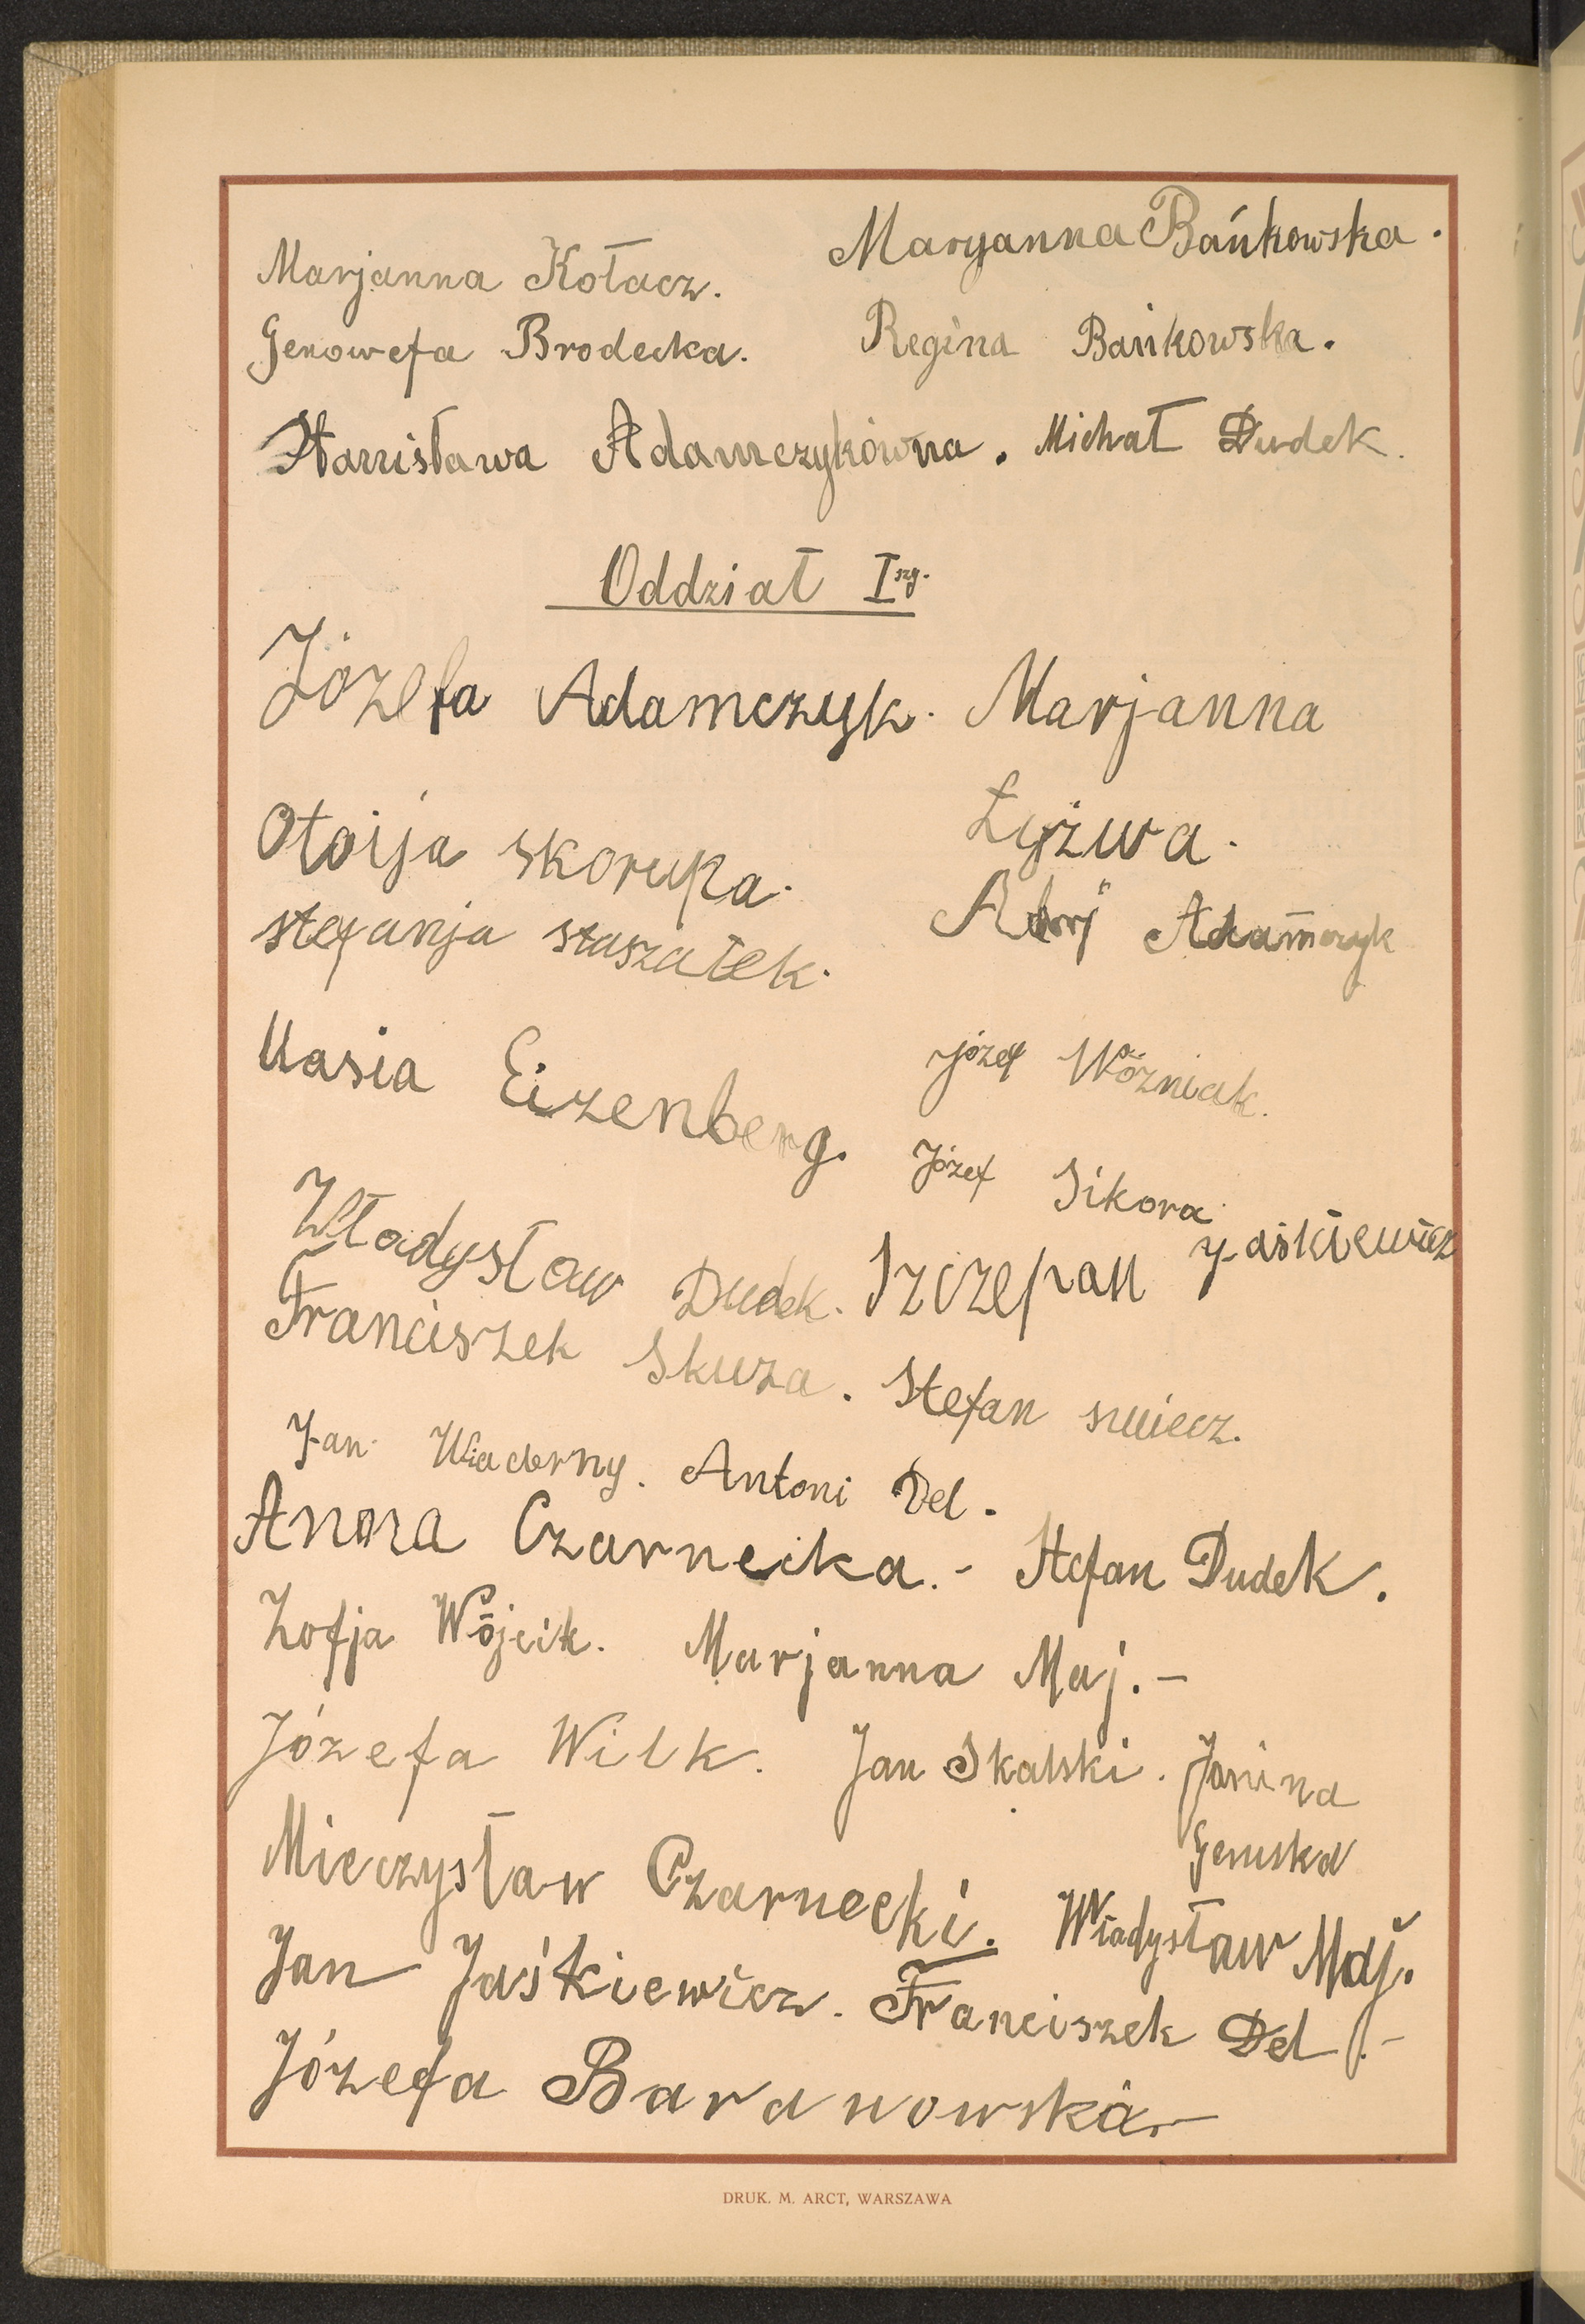 Marjanna Kołacz. Maryanna Bańkowska.
Genowefa Brodecka. Regina Bańkowska.
Stanisława Adamczykówna. Michał Dudek.
Oddział Iszy.
Józefa Adamczyk. Marjanna
Otolja skorupa. Łyżwa.
stefanja staszałek. Adamczyk
Józef Woźniak.
Uasia Eizenberg. Józef Sikora
Władysław Dudek. Szczepan Jaśkiewicz
Franciszek Skuza. Stefan swiecz.
Jan Wiaderny. Antoni Del.
Anna Czarnecka.- Stefan Dudek.
Zofja Wójcik. Marjanna Maj.-
Józefa Wilk. Jan Skalski. Janina
Mieczysław Czarnecki. Władysław Maj.
Jan Jaśkiewicz. Franciszek Del.-
Józefa Baranowska.-
DRUK. M. ARCT, WARSZAWA